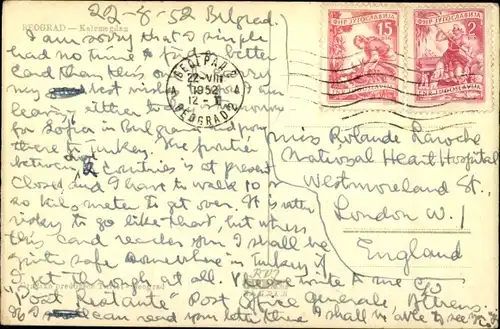 22-8-52 Belgrad.
BEOGRAD — Kalemegdan
I am sorry that I simple
had no time to find better
card than this one. my
best wishes. I am
leaving either today
for Sofia in Bulgaria and from
there to Turkey. The frontier
between the 2 countries is at present
closed and I have to walk 10 or
20 kilometer to get over. It is rather
risky to go like that, but when
this card reaches you I shall be
quite safe somewhere in Turkey if
I get through at all. You can write to me c/o
"Post Restante" Post Office generale, Athens.
I can read your letter there I shall be able to see
ФНР ЈУГОСЛАВИЈА 15
ФНР ЈУГОСЛАВИЈА 2
БЕОГРАД 2
22-VIII
1952
12-
BEOGRAD
Miss Rolande Laroche
National Heart Hospital
Westmoreland St.,
London W.1
England